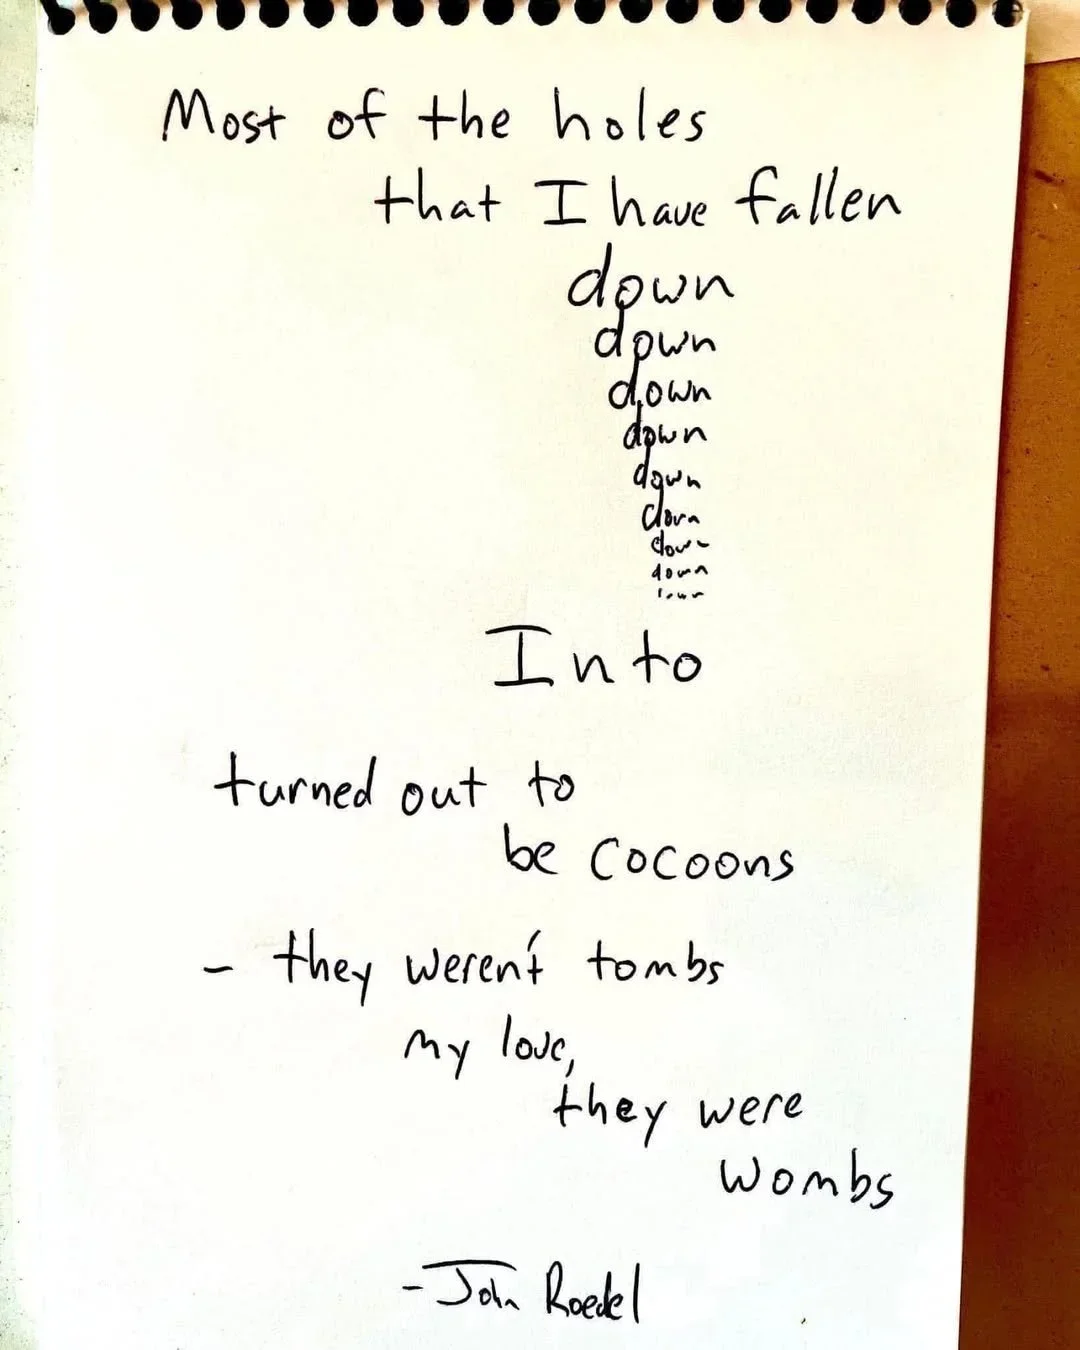 Most of the holes
that I have fallen
down
down
down
down
down
down
down
down
down
Into
turned out to
be cocoons
- they weren't tombs
my love,
they were
wombs
-John Roedel